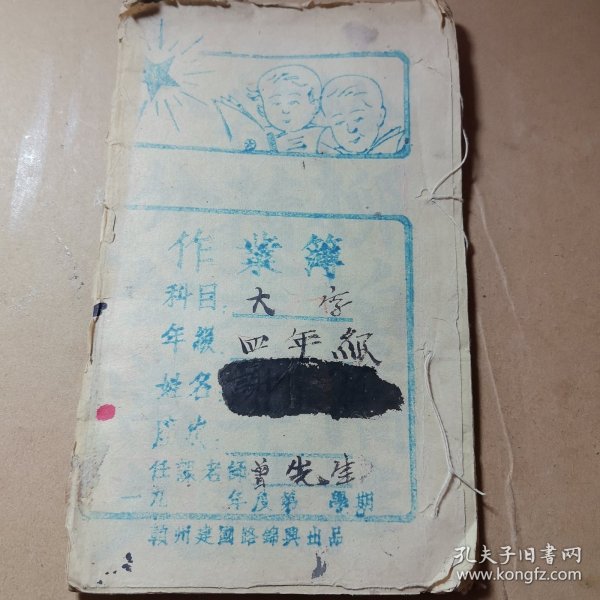 作業簿
科目 大字
年級 四年級
姓名
任課老師 曾先生
一九 年度第 學期
贛州建國路錦興出品
孔夫子旧书网
www.kongfz.com